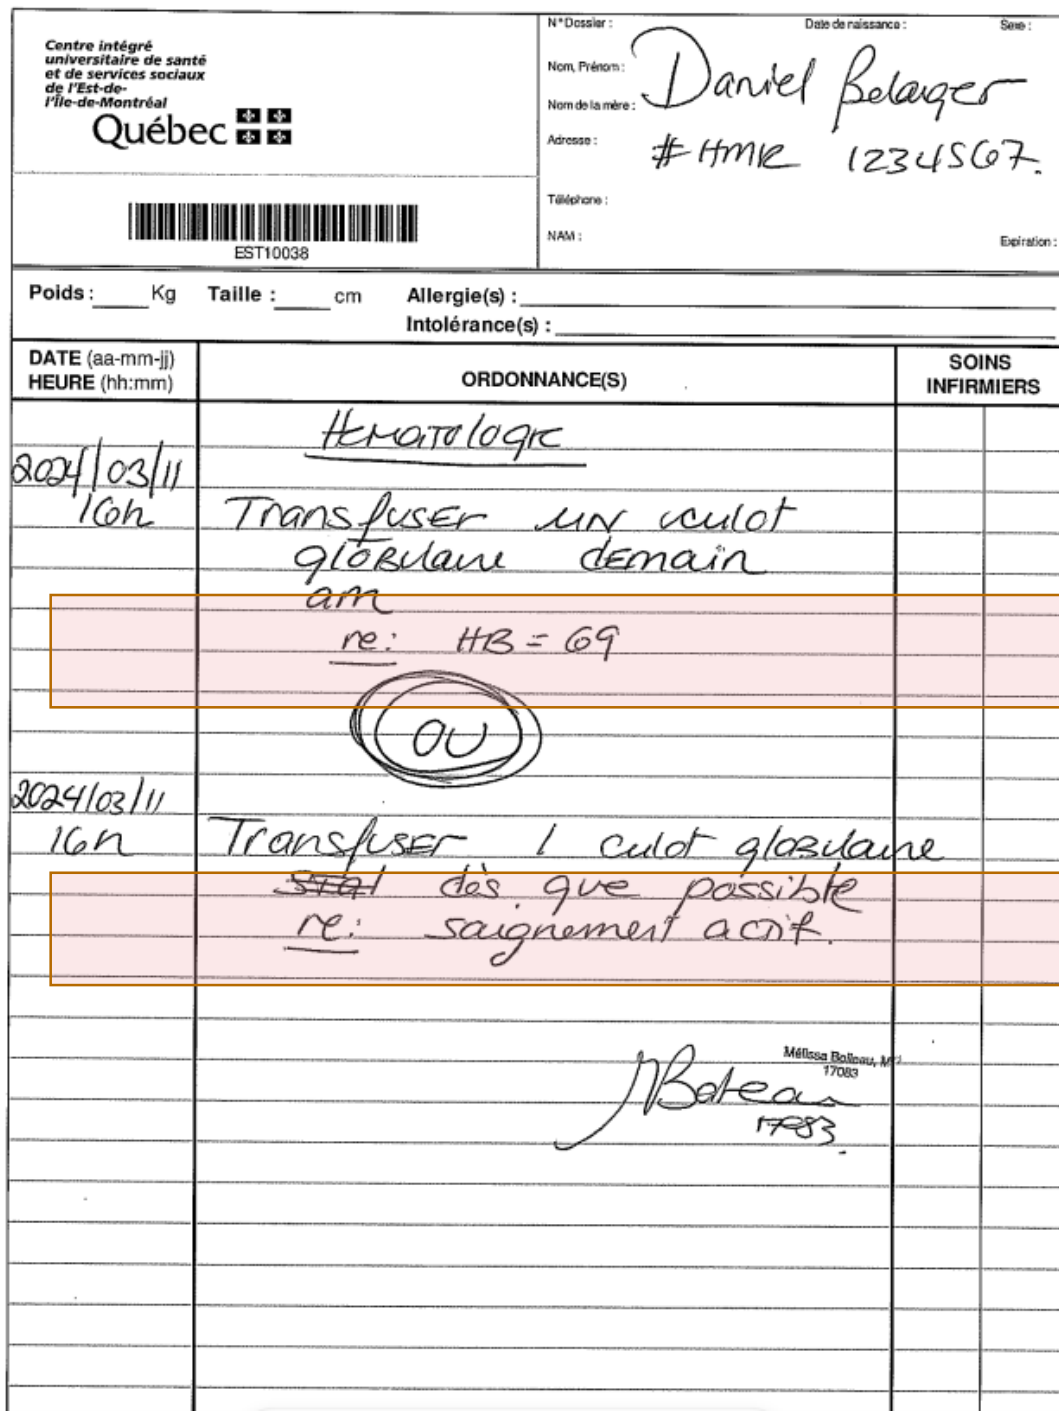 Centre intégré
universitaire de santé
et de services sociaux
de l'Est-de-
l'Île-de-Montréal
Québec
EST10038
N° Dossier :
Date de naissance :
Sexe :
Nom, Prénom :
Daniel Belanger
Nom de la mère :
Adresse :
# HMR 1234567.
Téléphone :
NAM :
Expiration :
Poids : Kg Taille : cm Allergie(s) :
Intolérance(s) :
DATE (aa-mm-jj)
HEURE (hh:mm)
ORDONNANCE(S)
SOINS
INFIRMIERS
Hematologie
2024/03/11
16h
Transfuser un culot
globulaire demain
am
re: HB = 69
OU
2024/03/11
16h
Transfuser 1 culot globulaire
stat dès que possible
re: saignement actif.
Mélissa Boileau, MD
17083
17083.